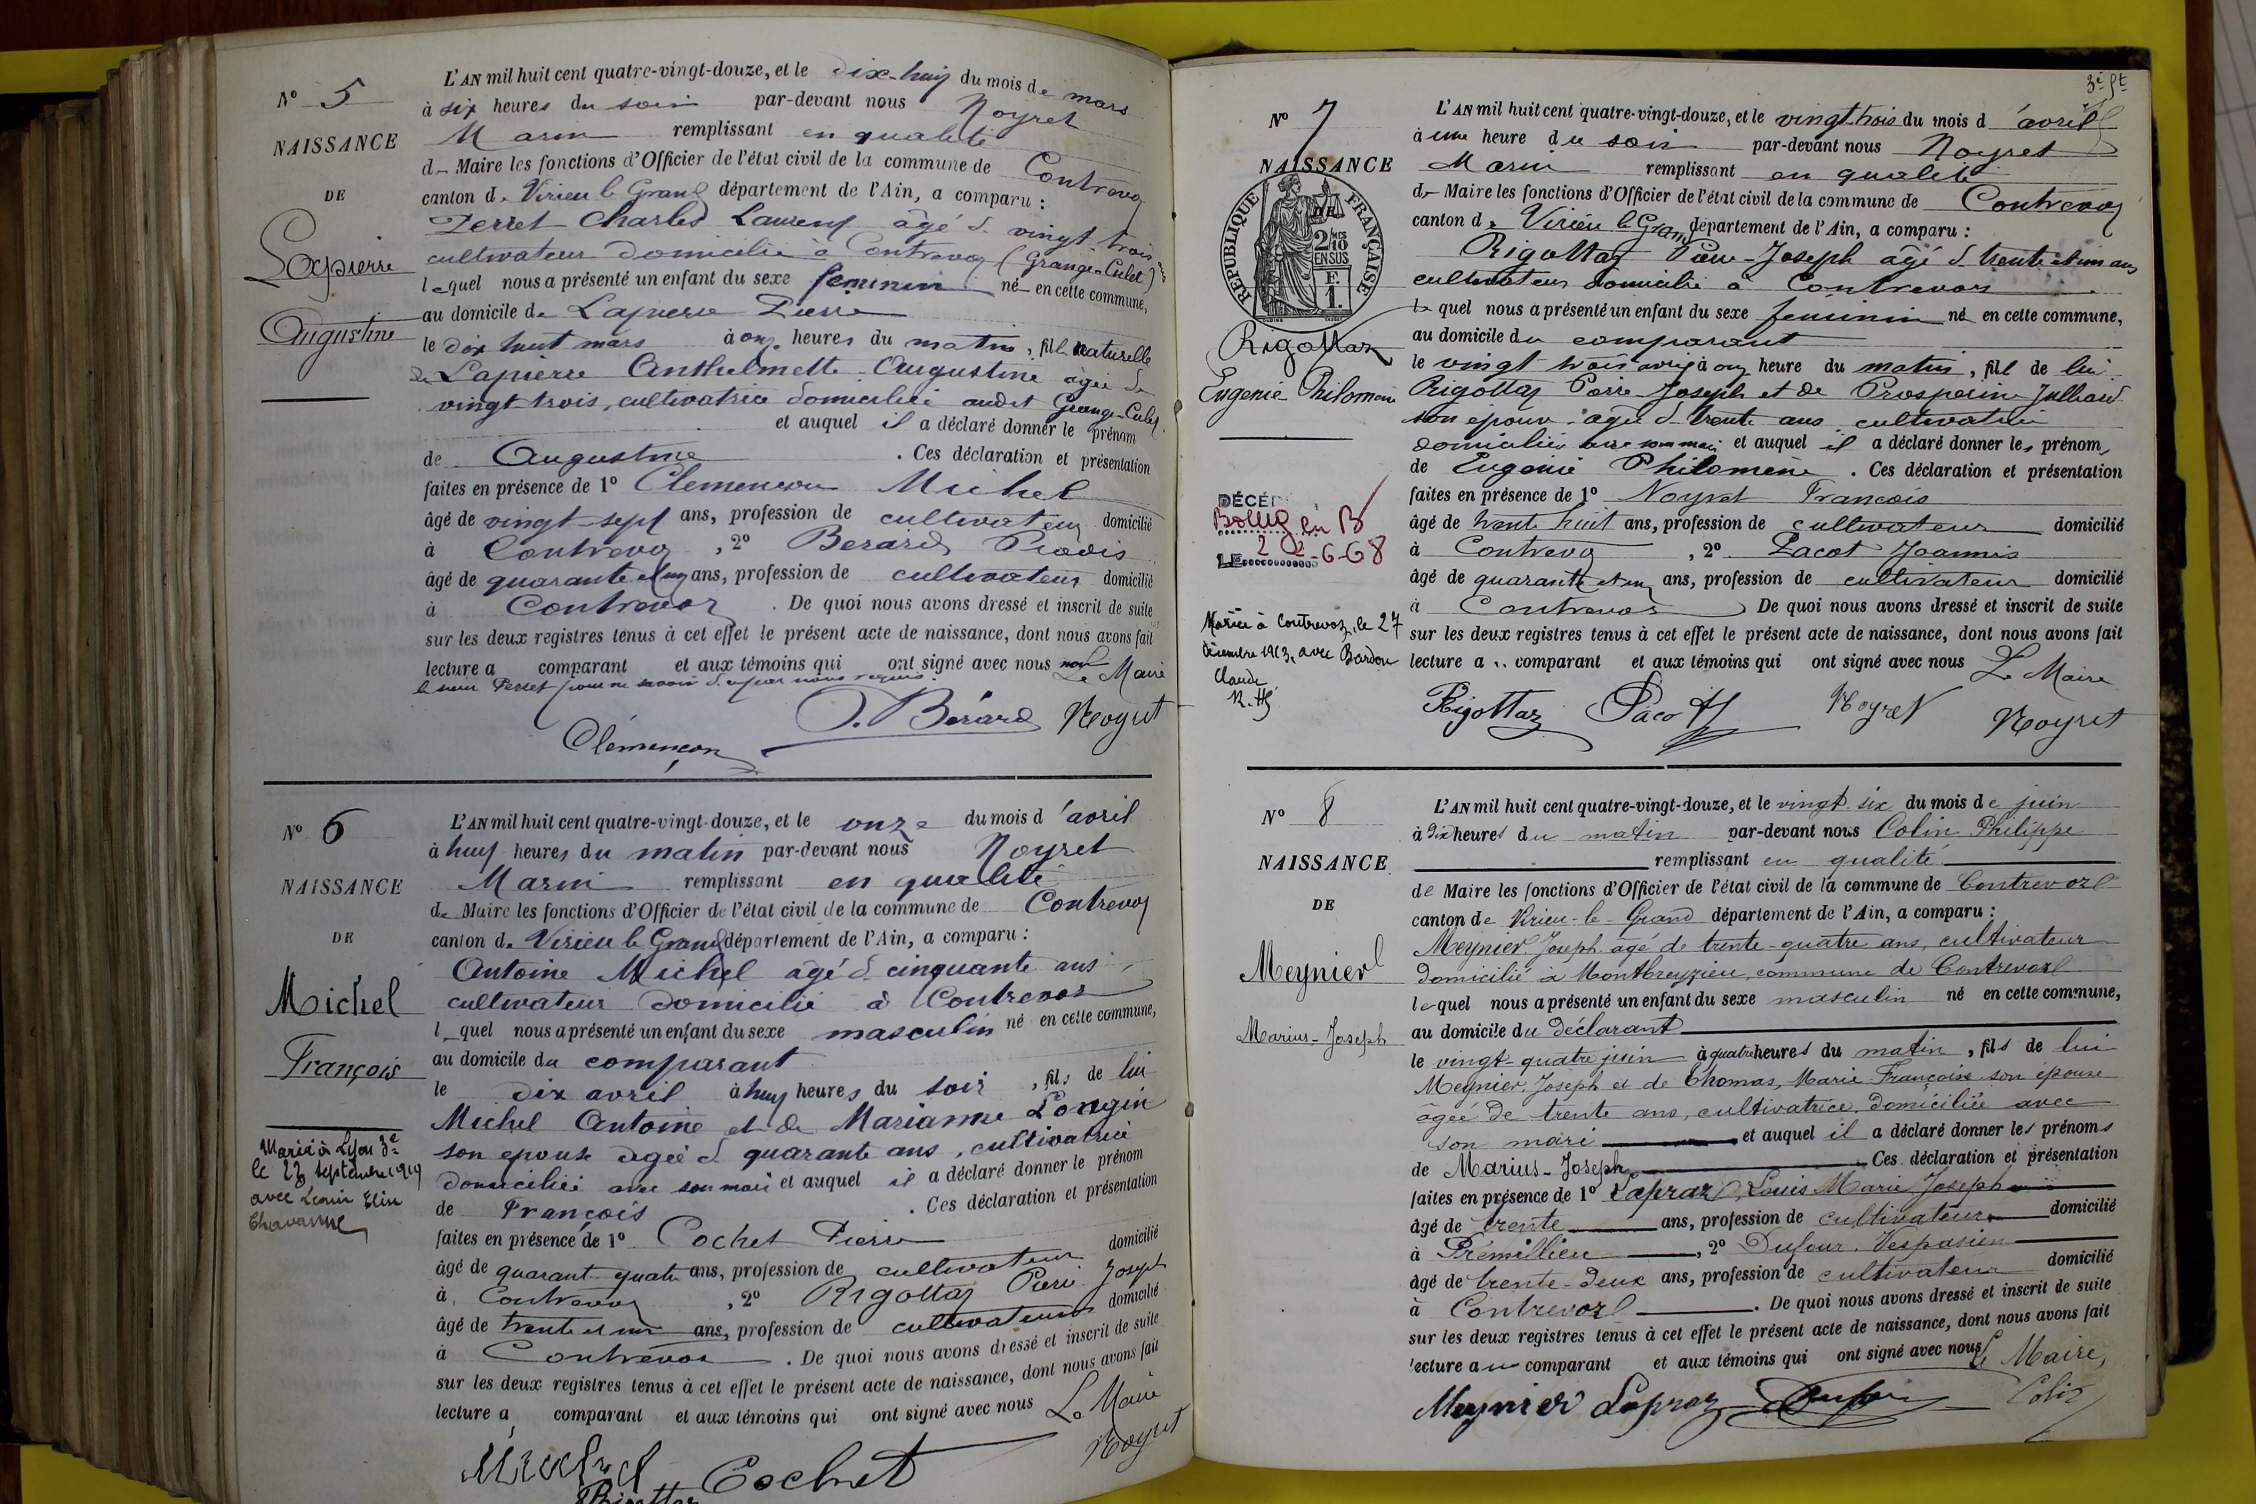 N° 5
NAISSANCE
DE
Lapierre
Augustine
L'AN mil huit cent quatre-vingt-douze, et le dix-huit du mois de mars
à six heures du soir par-devant nous Noyret
Marin remplissant en qualité
de Maire les fonctions d'Officier de l'état civil de la commune de Contrevoz
canton de Virieu le Grand département de l'Ain, a comparu :
Perret Charles Laurent âgé de vingt trois ans
cultivateur domicilié à Contrevoz (Grange-Culet)
lequel nous a présenté un enfant du sexe féminin né en cette commune,
au domicile de Lapierre Pierre
le dix huit mars à onz heures du matin, fille naturelle
de Lapierre Anthelmette Augustine âgée de
vingt-trois, cultivatrice domiciliée audit Grange-Culet
et auquel il a déclaré donner le prénom
de Augustine . Ces déclaration et présentation
faites en présence de 1° Clemencon Michel
âgé de vingt-sept ans, profession de cultivateur domicilié
à Contrevoz , 2° Berard
âgé de quarante et un ans, profession de cultivateur domicilié
à Contrevoz . De quoi nous avons dressé et inscrit de suite
sur les deux registres tenus à cet effet le présent acte de naissance, dont nous avons fait
lecture a comparant et aux témoins qui ont signé avec nous non
le sieur Perret pour ne savoir de ce par nous requis. Le Maire
Clémençon
Bérard Noyret
N° 6
NAISSANCE
DE
Michel
François
Marié à Lyon 3e
le 23 Septembre 1919
avec Léonie Elise
Chavanne
L'AN mil huit cent quatre-vingt-douze, et le onze du mois d'avril
à huit heures du matin par-devant nous Noyret
Marin remplissant en qualité
de Maire les fonctions d'Officier de l'état civil de la commune de Contrevoz
canton de Virieu le Grand département de l'Ain, a comparu :
Antoine Michel âgé de cinquante ans,
cultivateur domicilié à Contrevoz
lequel nous a présenté un enfant du sexe masculin né en cette commune,
au domicile du comparant
le dix avril à huit heures du soir , fils de lui
Michel Antoine et de Marianne Longin
son épouse âgée de quarante ans, cultivatrice
domiciliée avec son mari et auquel il a déclaré donner le prénom
de François . Ces déclaration et présentation
faites en présence de 1° Cochet Pierre
âgé de quarant-quatre ans, profession de cultivateur domicilié
à Contrevoz , 2° Rigottaz Pierre Joseph
âgé de trente et un ans, profession de cultivateur domicilié
à Contrevoz . De quoi nous avons dressé et inscrit de suite
sur les deux registres tenus à cet effet le présent acte de naissance, dont nous avons fait
lecture a comparant et aux témoins qui ont signé avec nous Le Maire
Michel Cochet Noyret
Rigottaz
3e ft
N° 7
NAISSANCE
DE
RÉPUBLIQUE FRANÇAISE
2/10 EN SUS
F. 1.
Rigottaz
Eugénie Philomène
DÉCÉD
Bourg en B
LE 22-6-68
Mariée à Contrevoz, le 27
Décembre 1913, avec Bardon
Claude
L'AN mil huit cent quatre-vingt-douze, et le vingt-trois du mois d'avril
à une heure du soir par-devant nous Noyret
Marin remplissant en qualité
de Maire les fonctions d'Officier de l'état civil de la commune de Contrevoz
canton de Virieu le Grand département de l'Ain, a comparu :
Rigottaz Pierre-Joseph âgé de trente et un ans
cultivateur domicilié à Contrevoz
lequel nous a présenté un enfant du sexe féminin né en cette commune,
au domicile du comparant
le vingt trois avril à onz heure du matin, fill de lui
Rigottaz Pierre Joseph et de Prosperine Julliand
son épouse âgée de trente ans cultivatrice
domiciliée avec son mari et auquel il a déclaré donner les prénoms
de Eugénie Philomène . Ces déclaration et présentation
faites en présence de 1° Noyret François
âgé de trente huit ans, profession de cultivateur domicilié
à Contrevoz , 2° Pacot Joannis
âgé de quarante et un ans, profession de cultivateur domicilié
à Contrevoz De quoi nous avons dressé et inscrit de suite
sur les deux registres tenus à cet effet le présent acte de naissance, dont nous avons fait
lecture a comparant et aux témoins qui ont signé avec nous Le Maire
Rigottaz Pacot Noyret Noyret
N° 8
NAISSANCE
DE
Meynier
Marius-Joseph
L'AN mil huit cent quatre-vingt-douze, et le vingt-six du mois de juin
à dix heures du matin par-devant nous Colin Philippe
remplissant en qualité
de Maire les fonctions d'Officier de l'état civil de la commune de Contrevoz
canton de Virieu-le-Grand département de l'Ain, a comparu :
Meynier Joseph âgé de trente-quatre ans, cultivateur
domicilié à Montbreyzieu, commune de Contrevoz
lequel nous a présenté un enfant du sexe masculin né en cette commune,
au domicile du déclarant
le vingt-quatre juin à quatre heures du matin, fils de lui
Meynier Joseph et de Thomas, Marie Françoise son épouse
âgée de trente ans, cultivatrice domiciliée avec
son mari et auquel il a déclaré donner les prénoms
de Marius-Joseph Ces déclaration et présentation
faites en présence de 1° Lapraz, Louis Marie Joseph
âgé de trente ans, profession de cultivateur domicilié
à Prémillieu , 2° Dufour, Vespasien
âgé de trente-deux ans, profession de cultivateur domicilié
à Contrevoz . De quoi nous avons dressé et inscrit de suite
sur les deux registres tenus à cet effet le présent acte de naissance, dont nous avons fait
lecture au comparant et aux témoins qui ont signé avec nous Le Maire,
Meynier Lapraz Dufour Colin